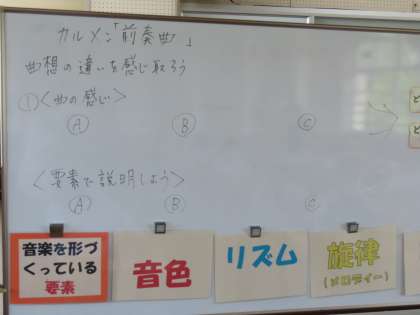 カルメン「前奏曲」
曲想の違いを感じ取ろう
①<曲の感じ>
Ⓐ Ⓑ Ⓒ
<要素で説明しよう>
Ⓐ Ⓑ Ⓒ
音楽を形づ
くっている
要素
音色
リズム
旋律
(メロディー)